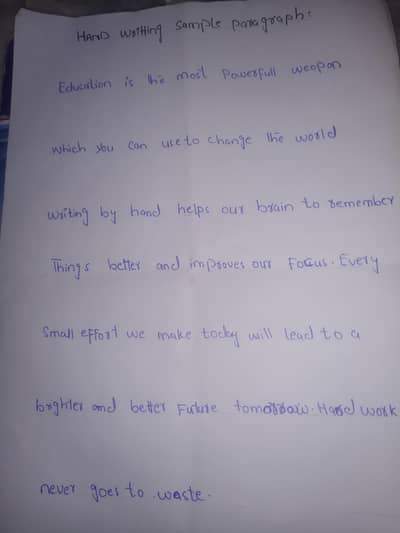 HAND Writting Sample Paragraph:
Education is the most Powerfull weopon
which you can use to change the world
writing by hand helps our brain to remember
Things better and improves our Focus. Every
Small effort we make today will lead to a
brighter and better Future tomorrow. Hard work
never goes to waste.